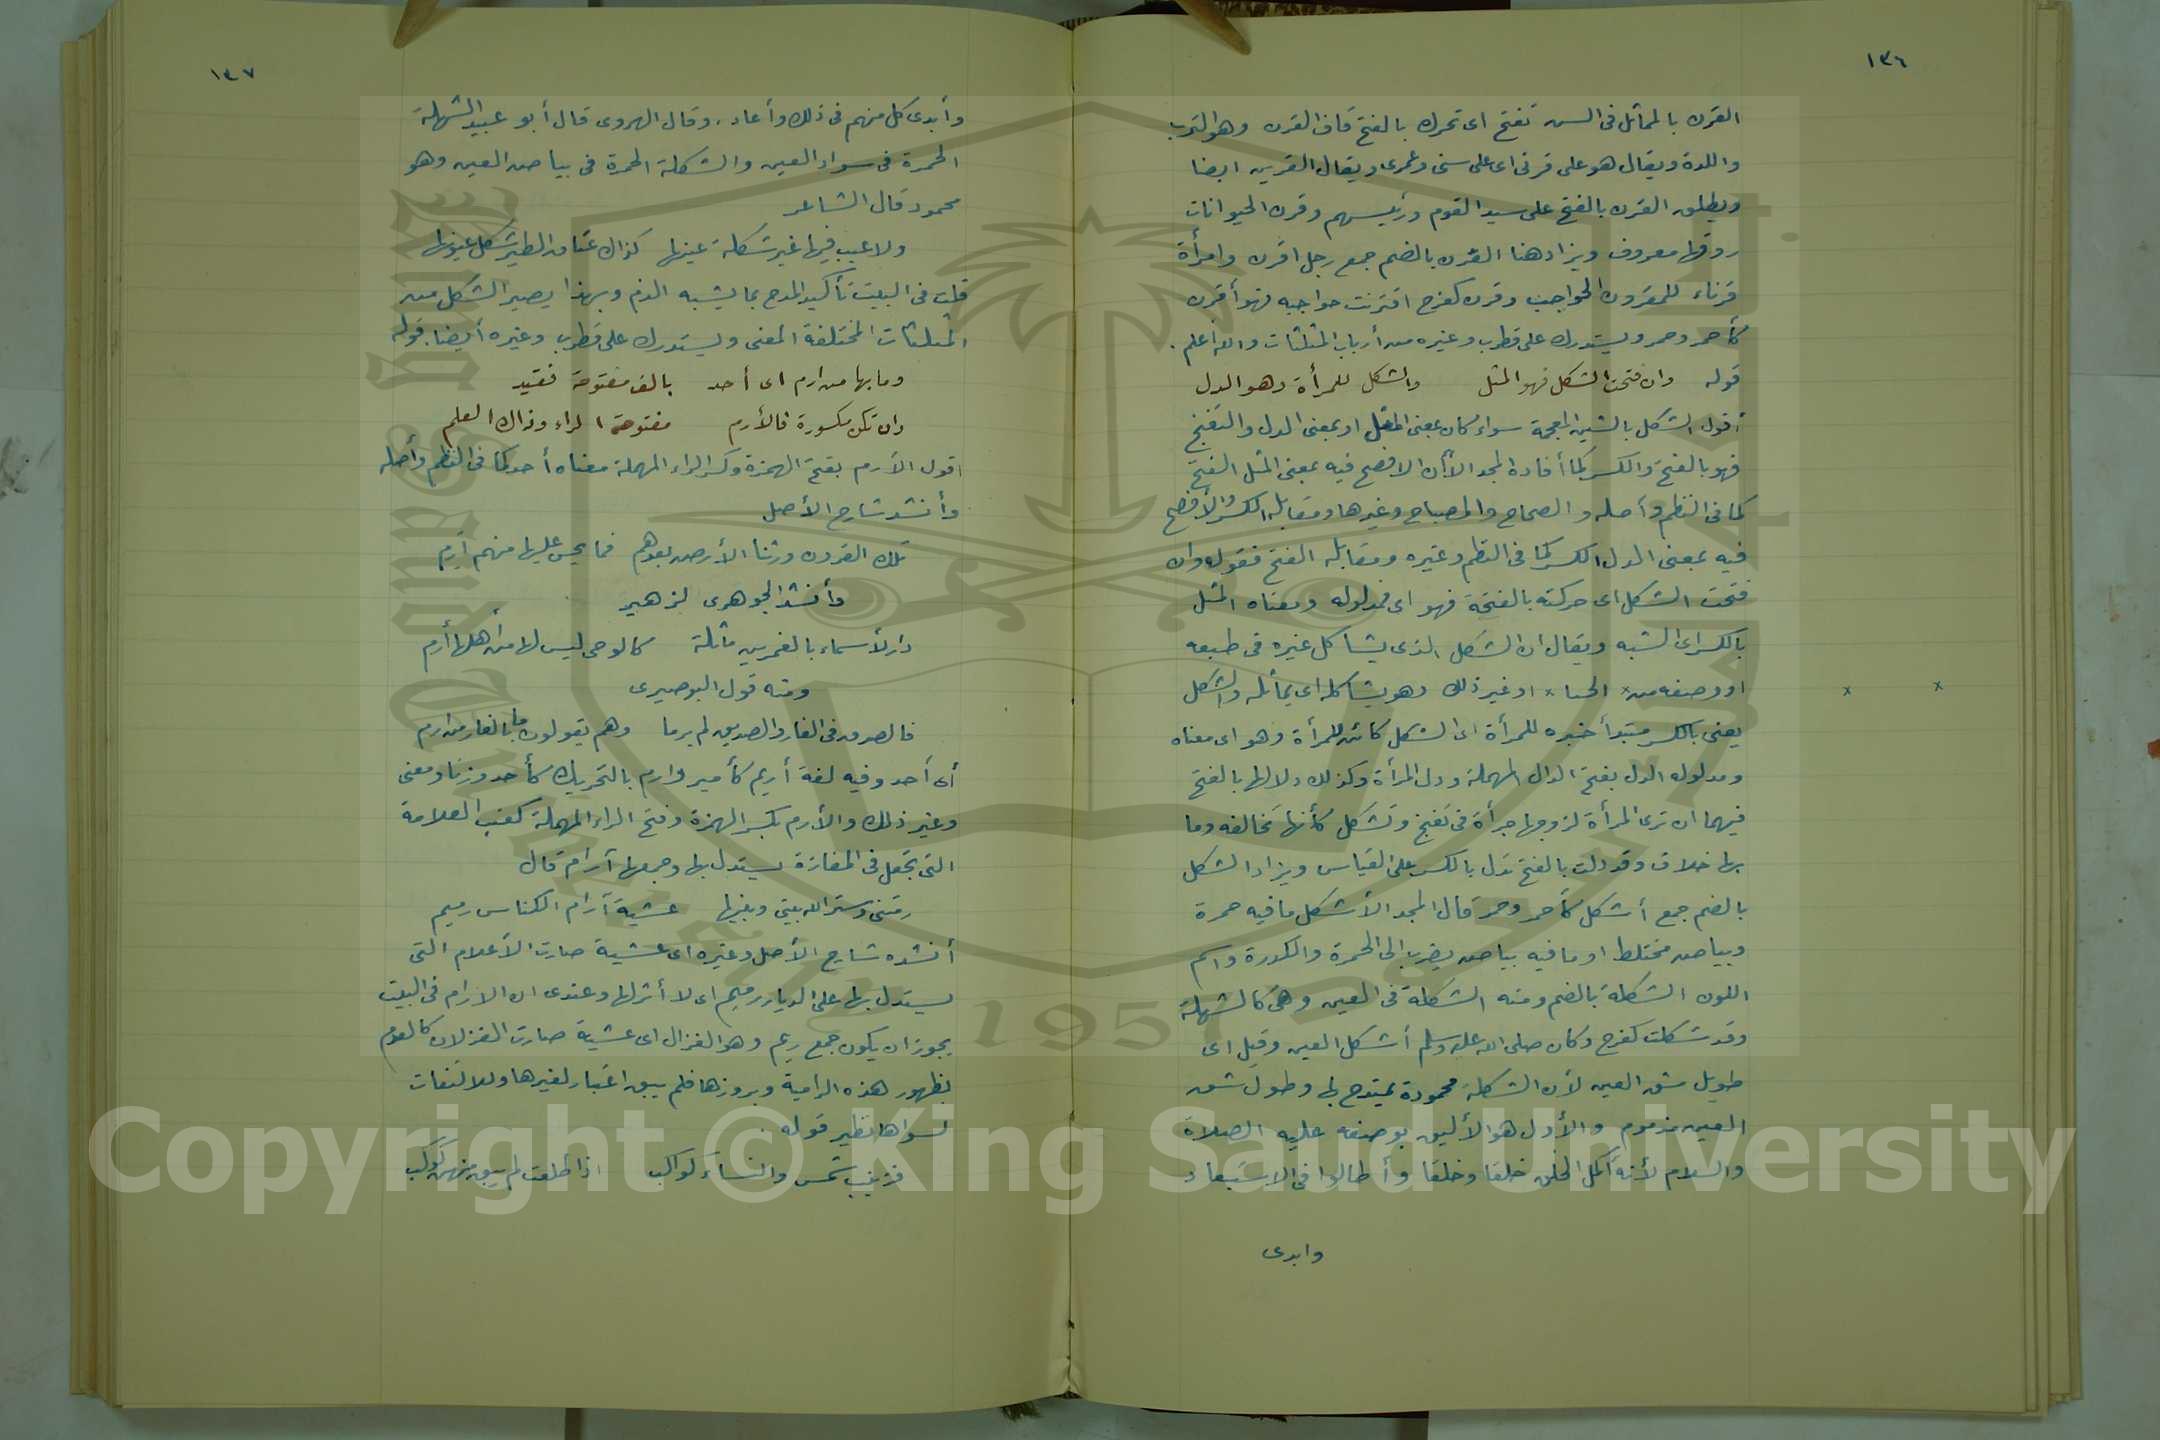 ١٣٦
القرن بالمماثل في السن تفتح اى تحرك بالفتح قاف القرن وهو الترب
واللدة ويقال هو على قرنى اى على سنى وعمرى ويقال القرين ايضا
ويطلق القرن بالفتح على سيد القوم ورئيسهم وقرن الحيوانات
روقها معروف ويزاد هنا القرن بالضم جمع رجل اقرن وامرأة
قرناء للمقرون الحواجب وقرن كفرح اقترنت حواجبه فهو أقرن
كأحمر وحمر ويستدرك على قطرب وغيره من أرباب المثلثات والله أعلم .
قوله وان فتحت الشكل فهو المثل والشكل للمرأة وهو الدل
أقول الشكل بالشين المعجمة سواء كان بمعنى المثل او بمعنى الدل والتغنج
فهو بالفتح والكسر كما أفاده المجد الا أن الافصح فيه بمعنى المثل الفتح
كما فى النظم وأصله والصحاح والمصباح وغيرها ومقابله الكسر والأفصح
فيه بمعنى الدل الكسر كما فى النظم وغيره ومقابله الفتح فقوله وان
فتحت الشكل اى حركته بالفتحة فهو اى فمدلوله ومعناه المثل
بالكسر اى الشبه ويقال ان الشكل الذى يشاكل غيره فى طبعه
او وصفه من x الحسا x او غير ذلك وهو يشاكله اى يماثله والشكل x x
يعنى بالكسر مبتدأ خبره للمرأة اى الشكل كائن للمرأة وهو اى معناه
ومدلوله الدل بفتح الدال المهملة ودل المرأة وكذلك دلالها بالفتح
فيهما ان ترى المرأة لزوجها جرأة فى تغنج وتشكل كأنها تخالفه وما
بها خلاف وقد دلت بالفتح تدل بالكسر على القياس ويزاد الشكل
بالضم جمع أشكل كأحمر وحمر قال المجد الأشكل ما فيه حمرة
وبياض مختلط او ما فيه بياض يضرب الى الحمرة والكدرة واسم
اللون الشكلة بالضم ومنه الشكلة فى العين وهى كالشهلة
وقد شكلت كفرح وكان صلى الله عليه وسلم أشكل العين وقيل اى
طويل شق العين لأن الشكلة محمودة يمتدح بها وطول شق
العين مذموم والأول هو الأليق بوصفه عليه الصلاة
والسلام لأنه أكمل الخلق خلقا وخلقا وأطالوا فى الاستبعاد
وابدى
١٣٧
وأبدى كل منهم فى ذلك وأعاد . وقال الهروى قال أبو عبيد الشهلة
الحمرة فى سواد العين والشكلة الحمرة فى بياض العين وهو
محمود قال الشاعر
ولا عيب فيها غير شكلة عينها كذاك عتاق الطير شكل عيونها
قلت فى البيت تأكيد المدح بما يشبه الذم وبهذا يصير الشكل من
المثلثات المختلفة المعنى ويستدرك على قطرب وغيره أيضا . قوله
وما بها من ارم اى أحد بالف مفتوحة فقيد
وان تكن مكسورة فالأرم مفتوحة الراء وذاك العلم
اقول الأرم بفتح الهمزة وكسر الراء المهملة معناه أحد كما فى النظم وأصله
وأنشد شارح الأصل
تلك القرون ورثنا الأرض بعدهم فما يحس عليها منهم أرم
وأنشد الجوهرى لزهير
دار لأسماء بالغمرين ماثلة كالوحى ليس لها من أهلها أرم
ومنه قول البوصيرى
فالصدق فى الغار والصديق لم يرما وهم يقولون ما بالغار من ارم
أى أحد وفيه لغة أريم كأمير وارم بالتحريك كأحد وزنا ومعنى
وغير ذلك والأرم بكسر الهمزة وفتح الراء المهملة كعنب العلامة
التى تجعل فى المفازة يستدل بها وجمعها آرام قال
رمتنى وستر الله بينى وبينها عشية آرام الكناس رميم
أنشده شارح الأصل وغيره اى عشية صارت الأعلام التى
يستدل بها على الديار رميم اى لا أثر لها وعندى ان الارام فى البيت
يجوز ان يكون جمع ريم وهو الغزال اى عشية صارت الغزلان كالعدم
بظهور هذه الرامية وبروزها فلم يبق اعتبار لغيرها ولا التفات
لسواها نظير قوله .
فزينب شمس والنساء كواكب اذا طلعت لم يبق منهن كوكب
King Saud University
1957
Copyright © King Saud University